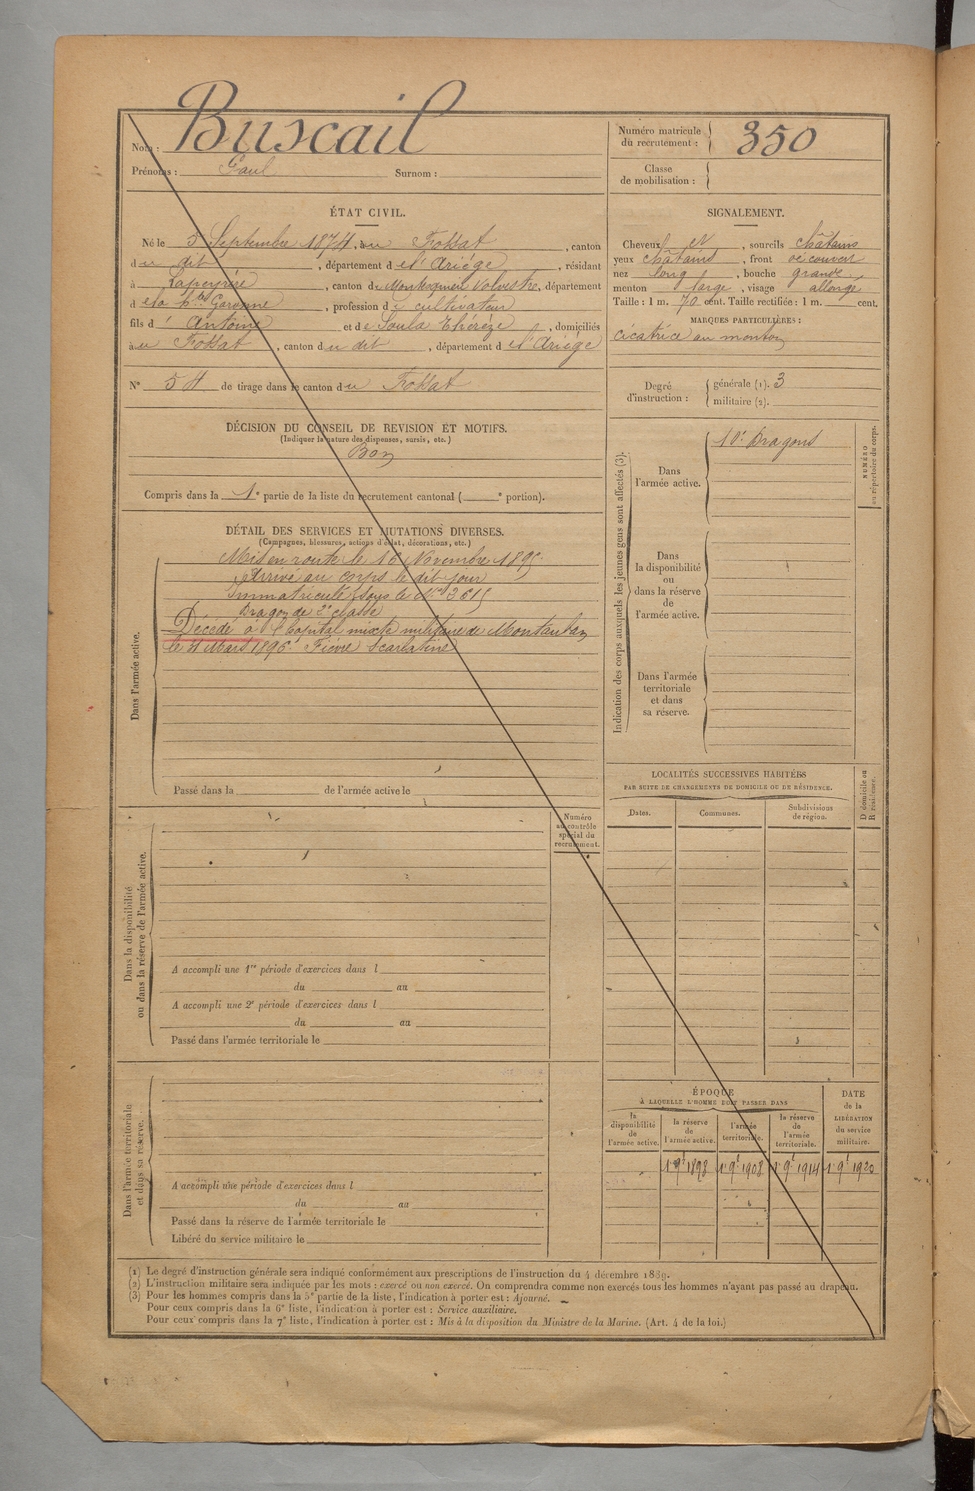 Nom : Buscail
Prénoms : Paul Surnom :
Numéro matricule
du recrutement : 350
Classe
de mobilisation :
ÉTAT CIVIL.
Né le 5 Septembre 1874, au Fossat, canton
du dit, département de l'Ariège, résidant
à Lapeyrère, canton de Montesquieu Volvestre, département
de la Hte Garonne, profession de cultivateur
fils d' Antoine et de Soula Thérèze, domiciliés
au Fossat, canton du dit, département de l'Ariège
N° 54 de tirage dans le canton du Fossat
DÉCISION DU CONSEIL DE REVISION ET MOTIFS.
(Indiquer la nature des dispenses, sursis, etc.)
Bon
Compris dans la 1e partie de la liste du recrutement cantonal ( e portion).
DÉTAIL DES SERVICES ET MUTATIONS DIVERSES.
(Campagnes, blessures, actions d'éclat, décorations, etc.)
Mis en route le 16 Novembre 1895
Arrivé au corps le dit jour
Immatriculé sous le No 3615
Dragon de 2e classe
Décédé à l'hôpital mixte militaire de Montauban
le 4 Mars 1896. Fièvre Scarlatine
Dans l'armée active.
Passé dans la de l'armée active le
Numéro
au contrôle
spécial du
recrutement.
Dans la disponibilité
ou dans la réserve de l'armée active.
A accompli une 1re période d'exercices dans l
du au
A accompli une 2e période d'exercices dans l
du au
Passé dans l'armée territoriale le
Dans l'armée territoriale
et dans sa réserve.
A accompli une période d'exercices dans l
du au
Passé dans la réserve de l'armée territoriale le
Libéré du service militaire le
SIGNALEMENT.
Cheveux et, sourcils châtains
yeux châtains, front découvert
nez long, bouche grande
menton large, visage allongé
Taille : 1 m. 70 cent. Taille rectifiée : 1 m. cent.
MARQUES PARTICULIÈRES :
cicatrice au menton
Degré
d'instruction :
générale (1). 3
militaire (2).
Indication des corps auxquels les jeunes gens sont affectés (3).
Dans
l'armée active.
10e Dragons
NUMÉRO
au répertoire du corps.
Dans
la disponibilité
ou
dans la réserve
de
l'armée active.
Dans l'armée
territoriale
et dans
sa réserve.
LOCALITÉS SUCCESSIVES HABITÉES
PAR SUITE DE CHANGEMENTS DE DOMICILE OU DE RÉSIDENCE.
Dates. Communes. Subdivisions
de région.
D domicile ou
R résidence.
ÉPOQUE
À LAQUELLE L'HOMME DOIT PASSER DANS
DATE
de la
LIBÉRATION
du service
militaire.
la
disponibilité
de
l'armée active.
la réserve
de
l'armée active.
l'armée
territoriale.
la réserve
de
l'armée
territoriale.
1r 9e 1898 1r 9e 1908 1r 9e 1914 1r 9e 1920
(1) Le degré d'instruction générale sera indiqué conformément aux prescriptions de l'instruction du 4 décembre 1889.
(2) L'instruction militaire sera indiquée par les mots : exercé ou non exercé. On comprendra comme non exercés tous les hommes n'ayant pas passé au drapeau.
(3) Pour les hommes compris dans la 5e partie de la liste, l'indication à porter est : Ajourné.
Pour ceux compris dans la 6e liste, l'indication à porter est : Service auxiliaire.
Pour ceux compris dans la 7e liste, l'indication à porter est : Mis à la disposition du Ministre de la Marine. (Art. 4 de la loi.)